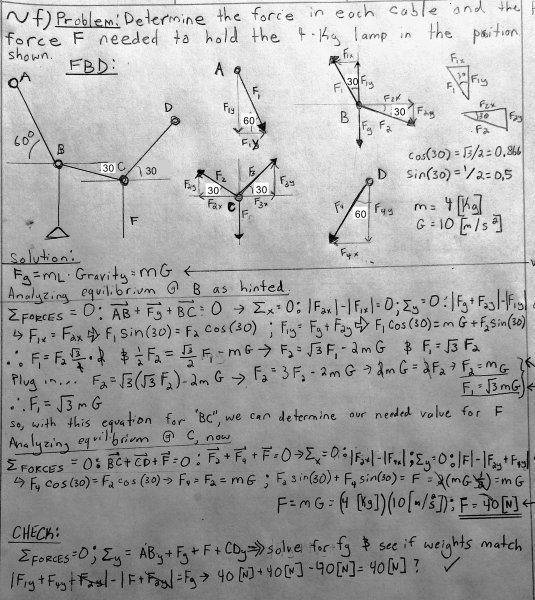 ~ f) Problem: Determine the force in each cable and the
force F needed to hold the 4-Kg lamp in the position
shown.
FBD:
A
D
60°
B
30
C
30
F
A
F₁y
F₁
60
F₁x
F₂y
F₂
F₂
F₃y
30
30
F₂x
C
F₃x
F
F₁x
F₁
30
F₁y
F₂x
B
30
F₂y
Fg
F₂
D
F₄
60
F₄y
F₄x
F₁x
F₁
30
F₁y
F₂x
30
F₂y
F₂
cos(30) = √3/2 = 0,866
sin(30) = 1/2 = 0,5
m = 4 [Kg]
G = 10 [m/s²]
Solution:
Fg = mL · Gravity = mG ←
Analyzing equilibrium @ B as hinted.
ΣFORCES = 0: AB + Fg + BC = 0 → Σx = 0: |F₂x| - |F₁x| = 0; Σy = 0: |Fg + F₂y| - |F₁y|
↳ F₁x = F₂x ⇒ F₁ sin(30) = F₂ cos(30) ; F₁y = Fg + F₂y ⇒ F₁ cos(30) = mG + F₂ sin(30)
∴ F₁ = F₂ √3/2 · 2 & ½ F₂ = √3/2 F₁ - mG → F₂ = √3 F₁ - 2mG & F₁ = √3 F₂
Plug in... F₂ = √3(√3 F₂) - 2mG → F₂ = 3F₂ - 2mG → 2mG = 2F₂ → F₂ = mG
∴ F₁ = √3 mG
F₁ = √3 mG
so, with this equation for "BC", we can determine our needed value for F
Analyzing equilibrium @ C, now
ΣFORCES = 0: BC + CD + F = 0: F₂ + F₄ + F = 0 → Σx = 0: |F₂x| - |F₄x| ; Σy = 0: |F| - |F₂y + F₄y|
↳ F₄ cos(30) = F₂ cos(30) → F₄ = F₂ = mG ; F₂ sin(30) + F₄ sin(30) = F = 2(mG ½) = mG
F = mG = (4 [Kg])(10 [m/s²]); F = 40 [N] ←
CHECK:
ΣFORCES = 0; Σy = ABy + Fg + F + CDy ⇒ solve for fg & see if weights match
|F₁y + F₄y + F₂y| - |F + F₂y| = Fg → 40 [N] + 40 [N] - 40 [N] = 40 [N] ? ✓